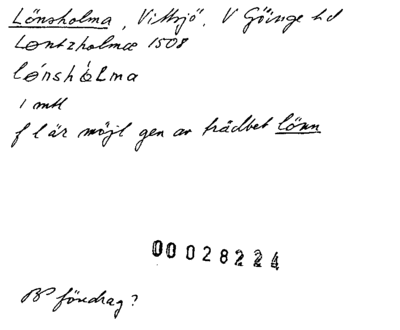 Lönsholma, Vittsjö, V Göinge hd
Lontzholmæ 1508
lónshòlma
1 mtl
f l är möjl gen av trädbet lönn
00028224
föredrag?